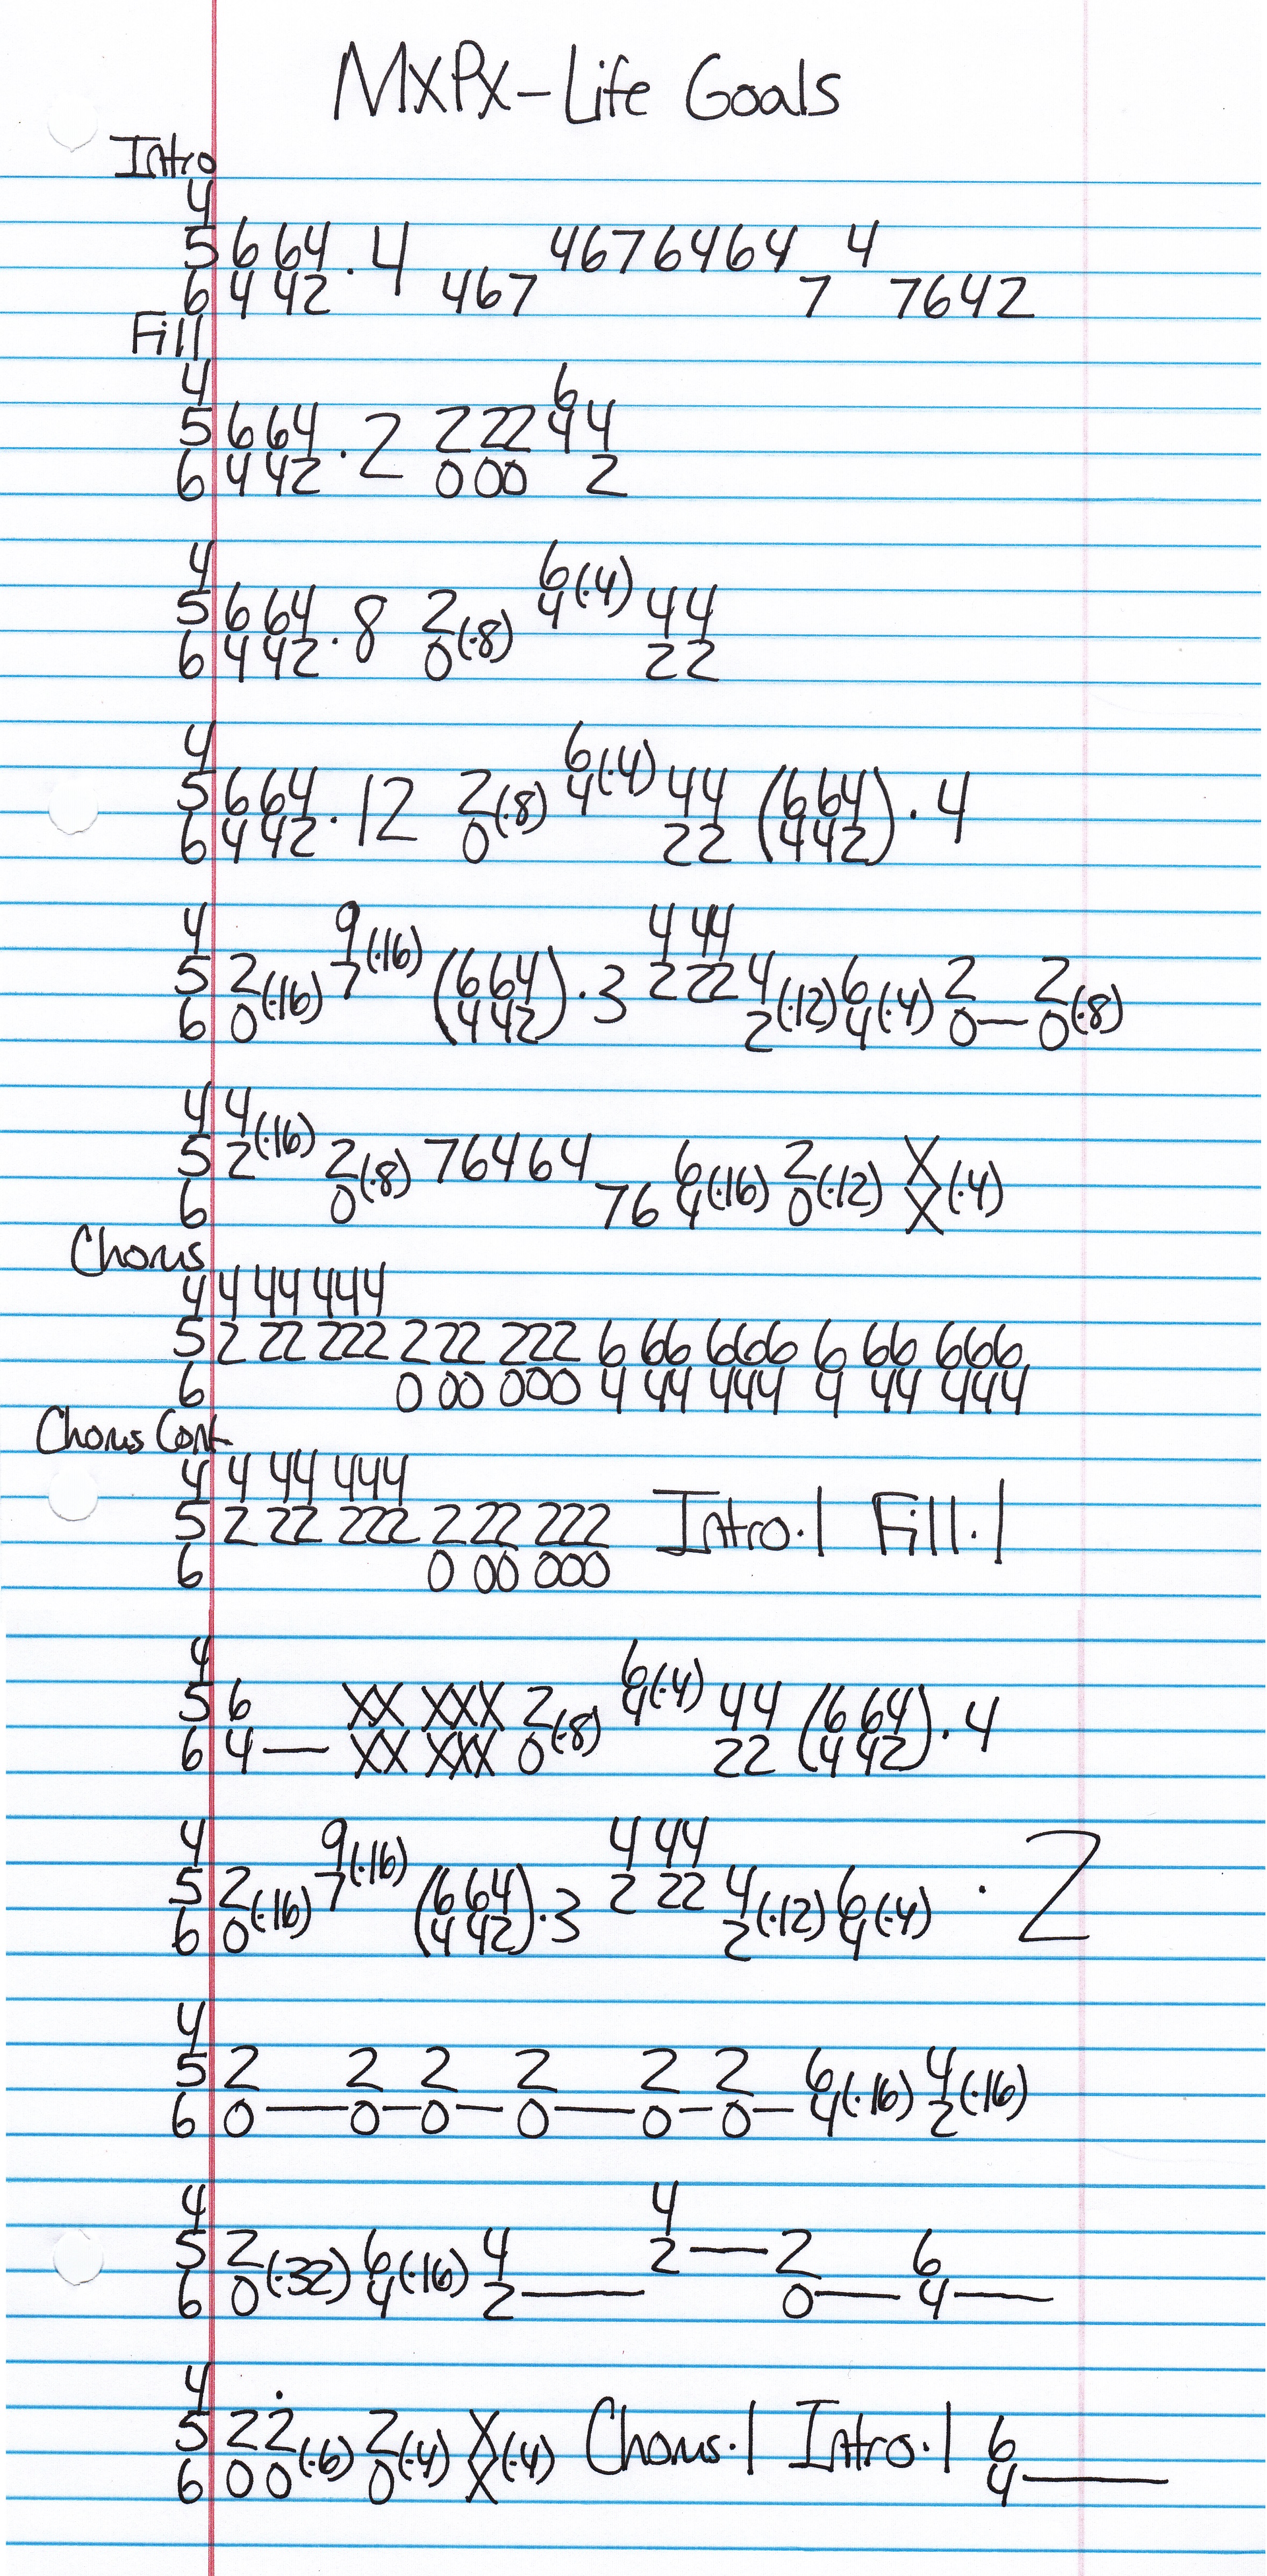 MXPX-Life Goals
Intro
4
5 6 64 . 4 4676464 4
6 4 42 467 7 7642
Fill
4 6
5 6 64 . 2 2 22 4 4
6 4 42 0 00 2
4 6(·4)
5 6 64 . 8 2(·8) 4 44
6 4 42 0 22
4 6(·4)
5 6 64 . 12 2(·8) 4 44 (6 64) . 4
6 4 42 0 22 (4 42)
4 9(·16) 4 44
5 2(·16) 7 (6 64) . 3 2 22 4(·12) 6(·4) 2 2(·8)
6 0 (4 42) 2 4 0— 0
4 4(·16)
5 2 2(·8) 76464 6(·16) 2(·12) X(·4)
6 0 76 4 0 X
Chorus
4 4 44 444
5 2 22 222 2 22 222 6 66 666 6 66 666
6 0 00 000 4 44 444 4 44 444
Chorus Cont
4 4 44 444
5 2 22 222 2 22 222 Intro·1 Fill·1
6 0 00 000
4 6(·4)
5 6 XX XXX 2(·8) 4 44 (6 64) . 4
6 4— XX XXX 0 22 (4 42)
4 9(·16) 4 44
5 2(·16) 7 (6 64) . 3 2 22 4(·12) 6(·4) . 2
6 0 (4 42) 2 4
4
5 2 2 2 2 2 2 6(·16) 4(·16)
6 0—0—0—0—0—0— 4 2
4 4
5 2(·32) 6(·16) 4 2— 2 6
6 0 4 2— 0— 4—
4 .
5 22(·6) 2(·4) X(·4) Chorus·1 Intro·1 6
6 00 0 X 4—